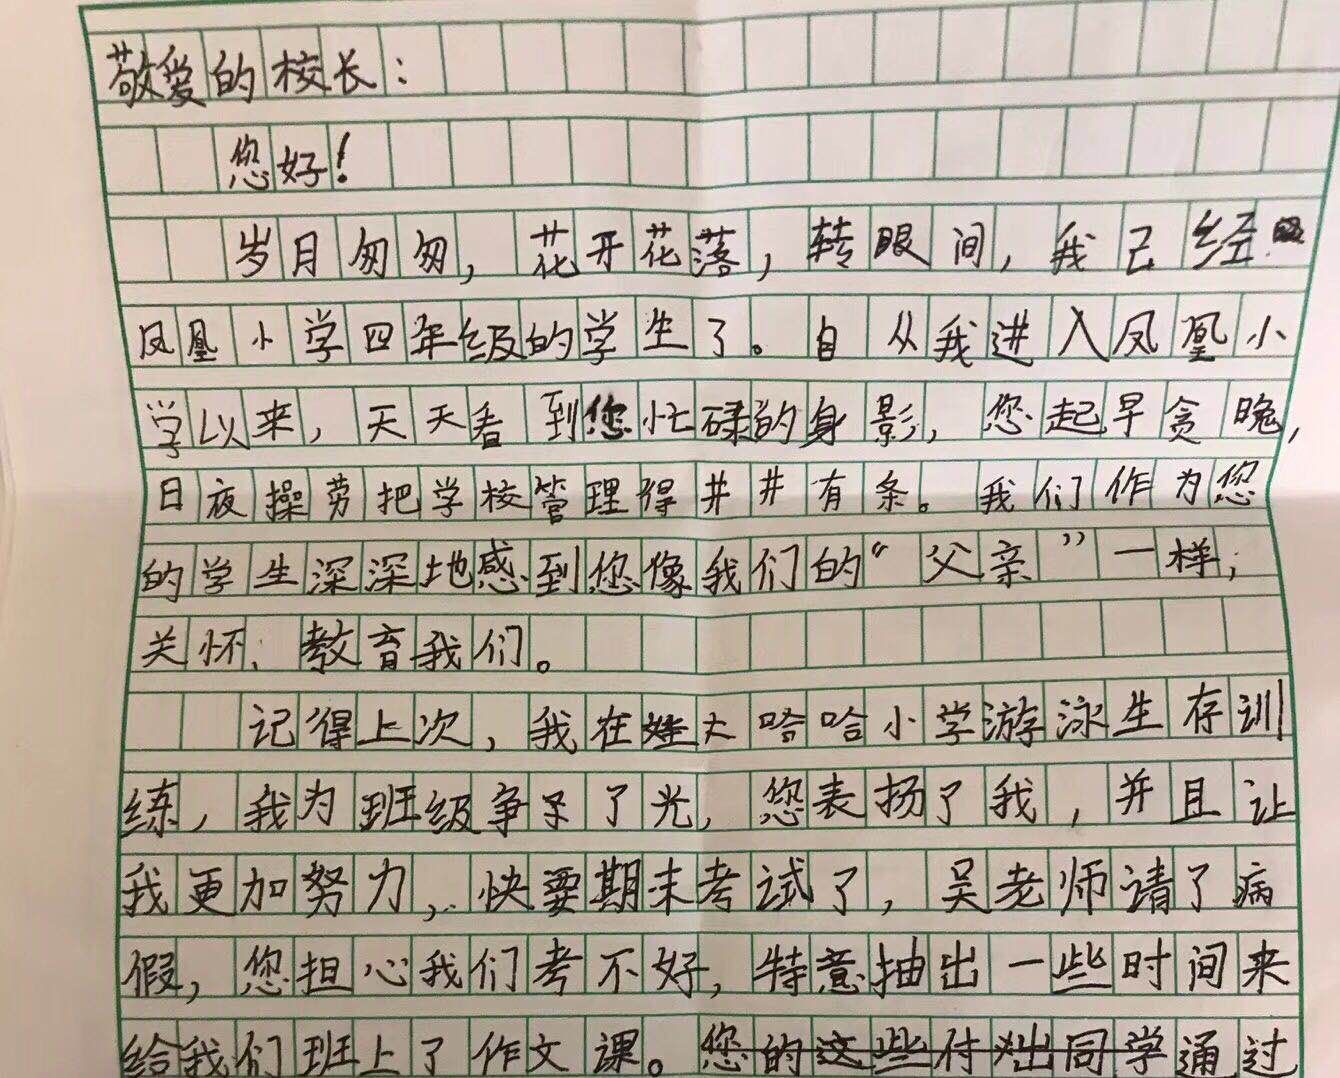 敬爱的校长：
您好！
岁月匆匆，花开花落，转眼间，我已经
凤凰小学四年级的学生了。自从我进入凤凰小
学以来，天天看到您忙碌的身影，您起早贪晚，
日夜操劳把学校管理得井井有条。我们作为您
的学生深深地感到您像我们的“父亲”一样，
关怀、教育我们。
记得上次，我在娃大哈哈小学游泳生存训
练，我为班级争了光，您表扬了我，并且让
我更加努力，快要期末考试了，吴老师请了病
假，您担心我们考不好，特意抽出一些时间来
给我们班上了作文课。您的这些付出同学通过